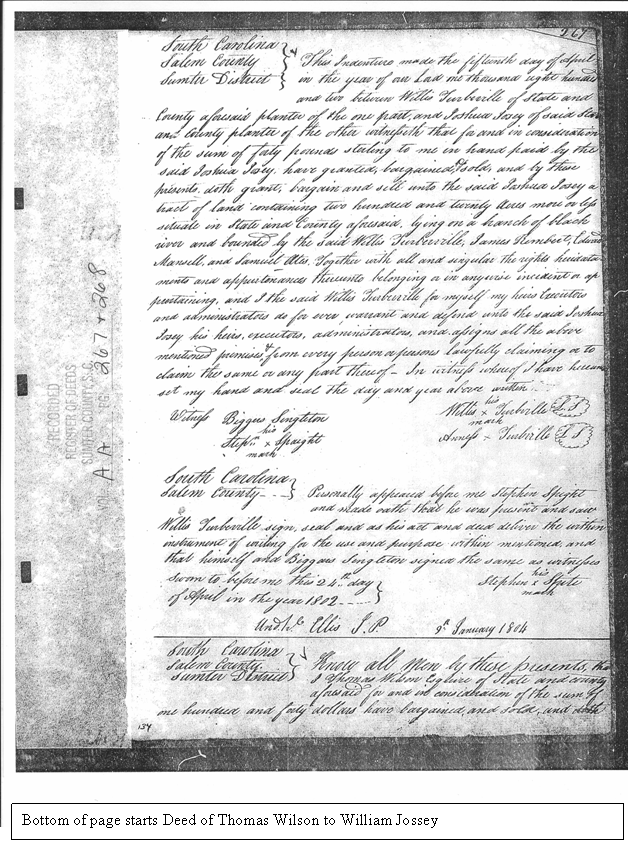 267
South Carolina
Salem County
Sumter District
This Indenture made the fifteenth day of April
in the year of our Lord one thousand eight hundred
and two between Willis Turberville of State and
County aforesaid planter of the one part, and Joshua Josey of said State
and County planter of the other witnesseth that for and in consideration
of the sum of forty pounds sterling to me in hand paid by the
said Joshua Josey, have granted, bargained, & sold, and by these
presents, doth grant, bargain and sell unto the said Joshua Josey a
tract of land containing two hundred and twenty acres more or less
setuate in State and County aforesaid, lying on a branch of black
river and bounded by the said Willis Turberville, James Rembert, Edward
Mansell, and Samuel Together with all and singular the rights heredita
ments and appurtenances thereunto belonging or in anywise incident or ap
pertaining, and I the said Willis Turberville for myself my heirs Executors
and administrators do for ever warrant and defend unto the said Joshua
Josey his heirs, executors, administrators, and assigns all the above
mentioned premises, & from every person or persons lawfully claiming or to
claim the same or any part thereof - In witness whereof I have hereunto
set my hand and seal the day and year above written
Witness Biggers Singleton
Steph.n his x mark Spraight
Willis his x mark Turbville L S
Anness x Turbville L S
South Carolina
Salem County
Personally appeared before me Stephen Spight
and made oath that he was present and saw
Willis Turberville sign, seal and as his act and deed deliver the within
instrument of writing for the use and purpose within mentioned, and
that himself and Biggars Singleton signed the same as witnesses
sworn to before me this 24th day
of April in the year 1802
Stephen his x mark Spite
Ellis J.P. 9th January 1804
South Carolina
Salem County
Sumter District
Know all Men by these presents, that
I Thomas Wilson Esquire of State and county
aforesaid for and in consideration of the sum of
one hundred and forty dollars have bargained, and sold, and doth
134
RECORDED
REGISTER OF DEEDS
SUMTER COUNTY, S.C.
VOL. AA PG. 267 + 268
Bottom of page starts Deed of Thomas Wilson to William Jossey